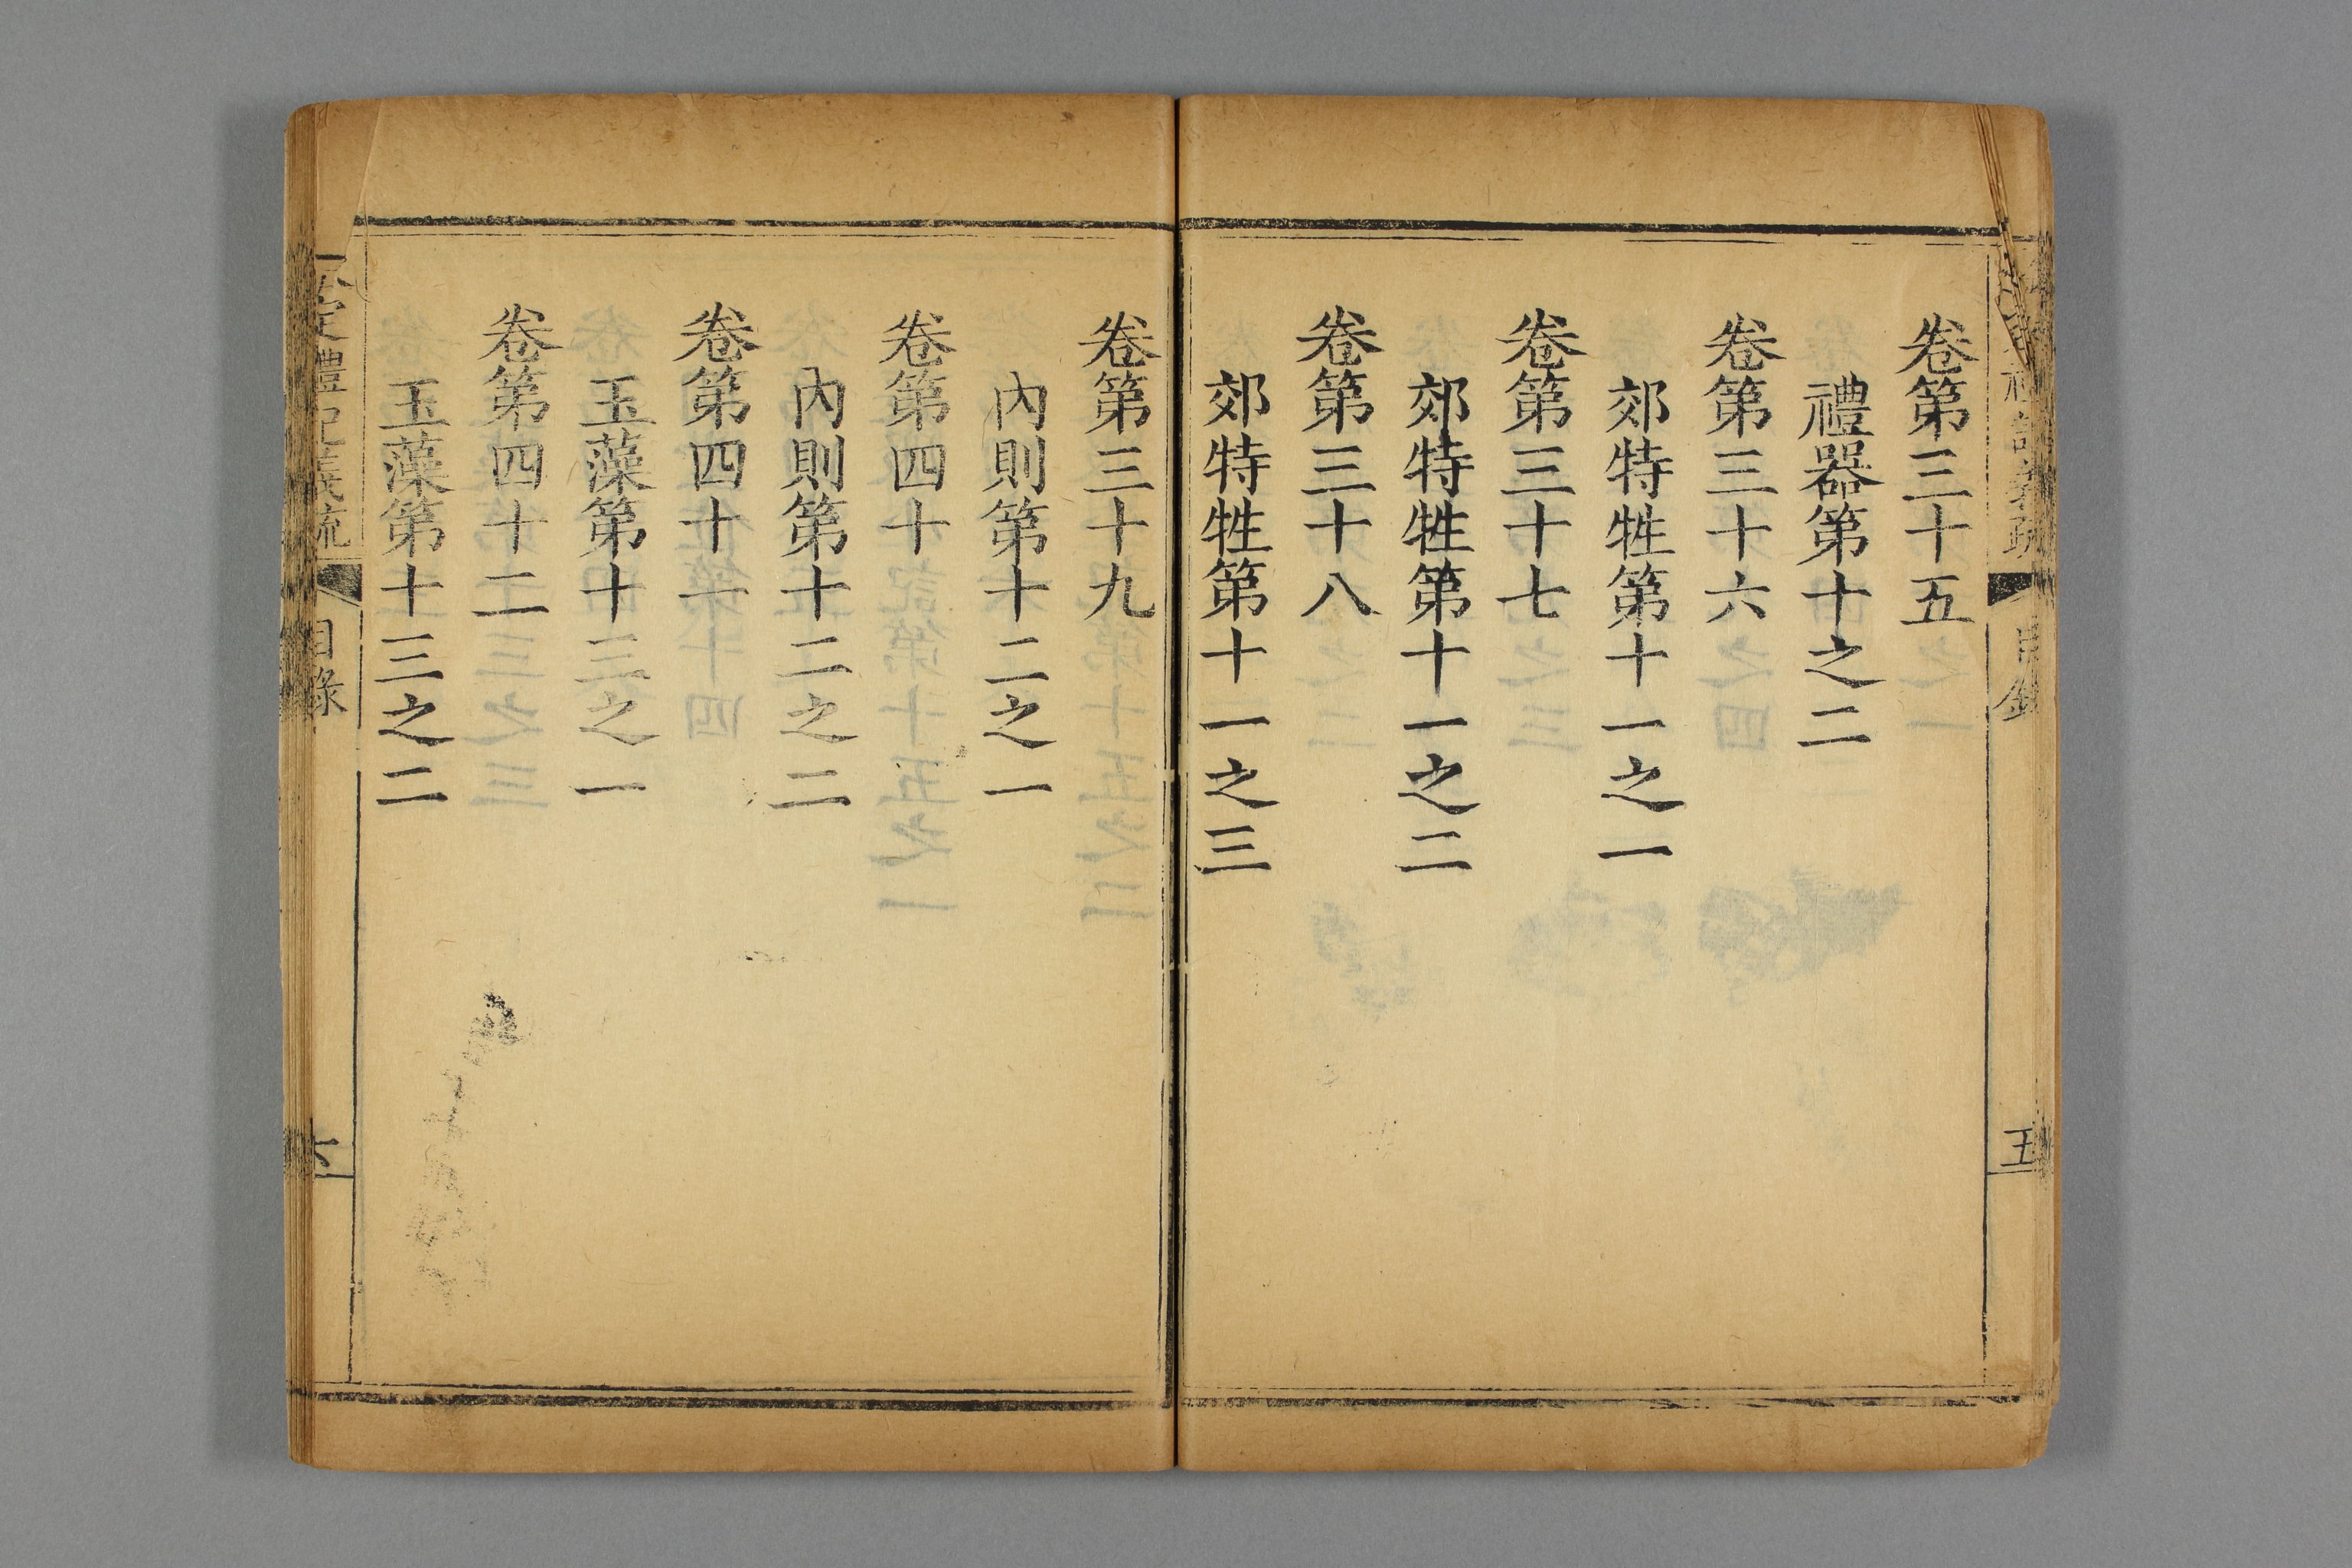 卷第三十五
禮器第十之二
卷第三十六
郊特牲第十一之一
卷第三十七
郊特牲第十一之二
卷第三十八
郊特牲第十一之三
卷第三十九
內則第十二之一
卷第四十
內則第十二之二
卷第四十一
玉藻第十三之一
卷第四十二
玉藻第十三之二
定禮記義疏
目錄